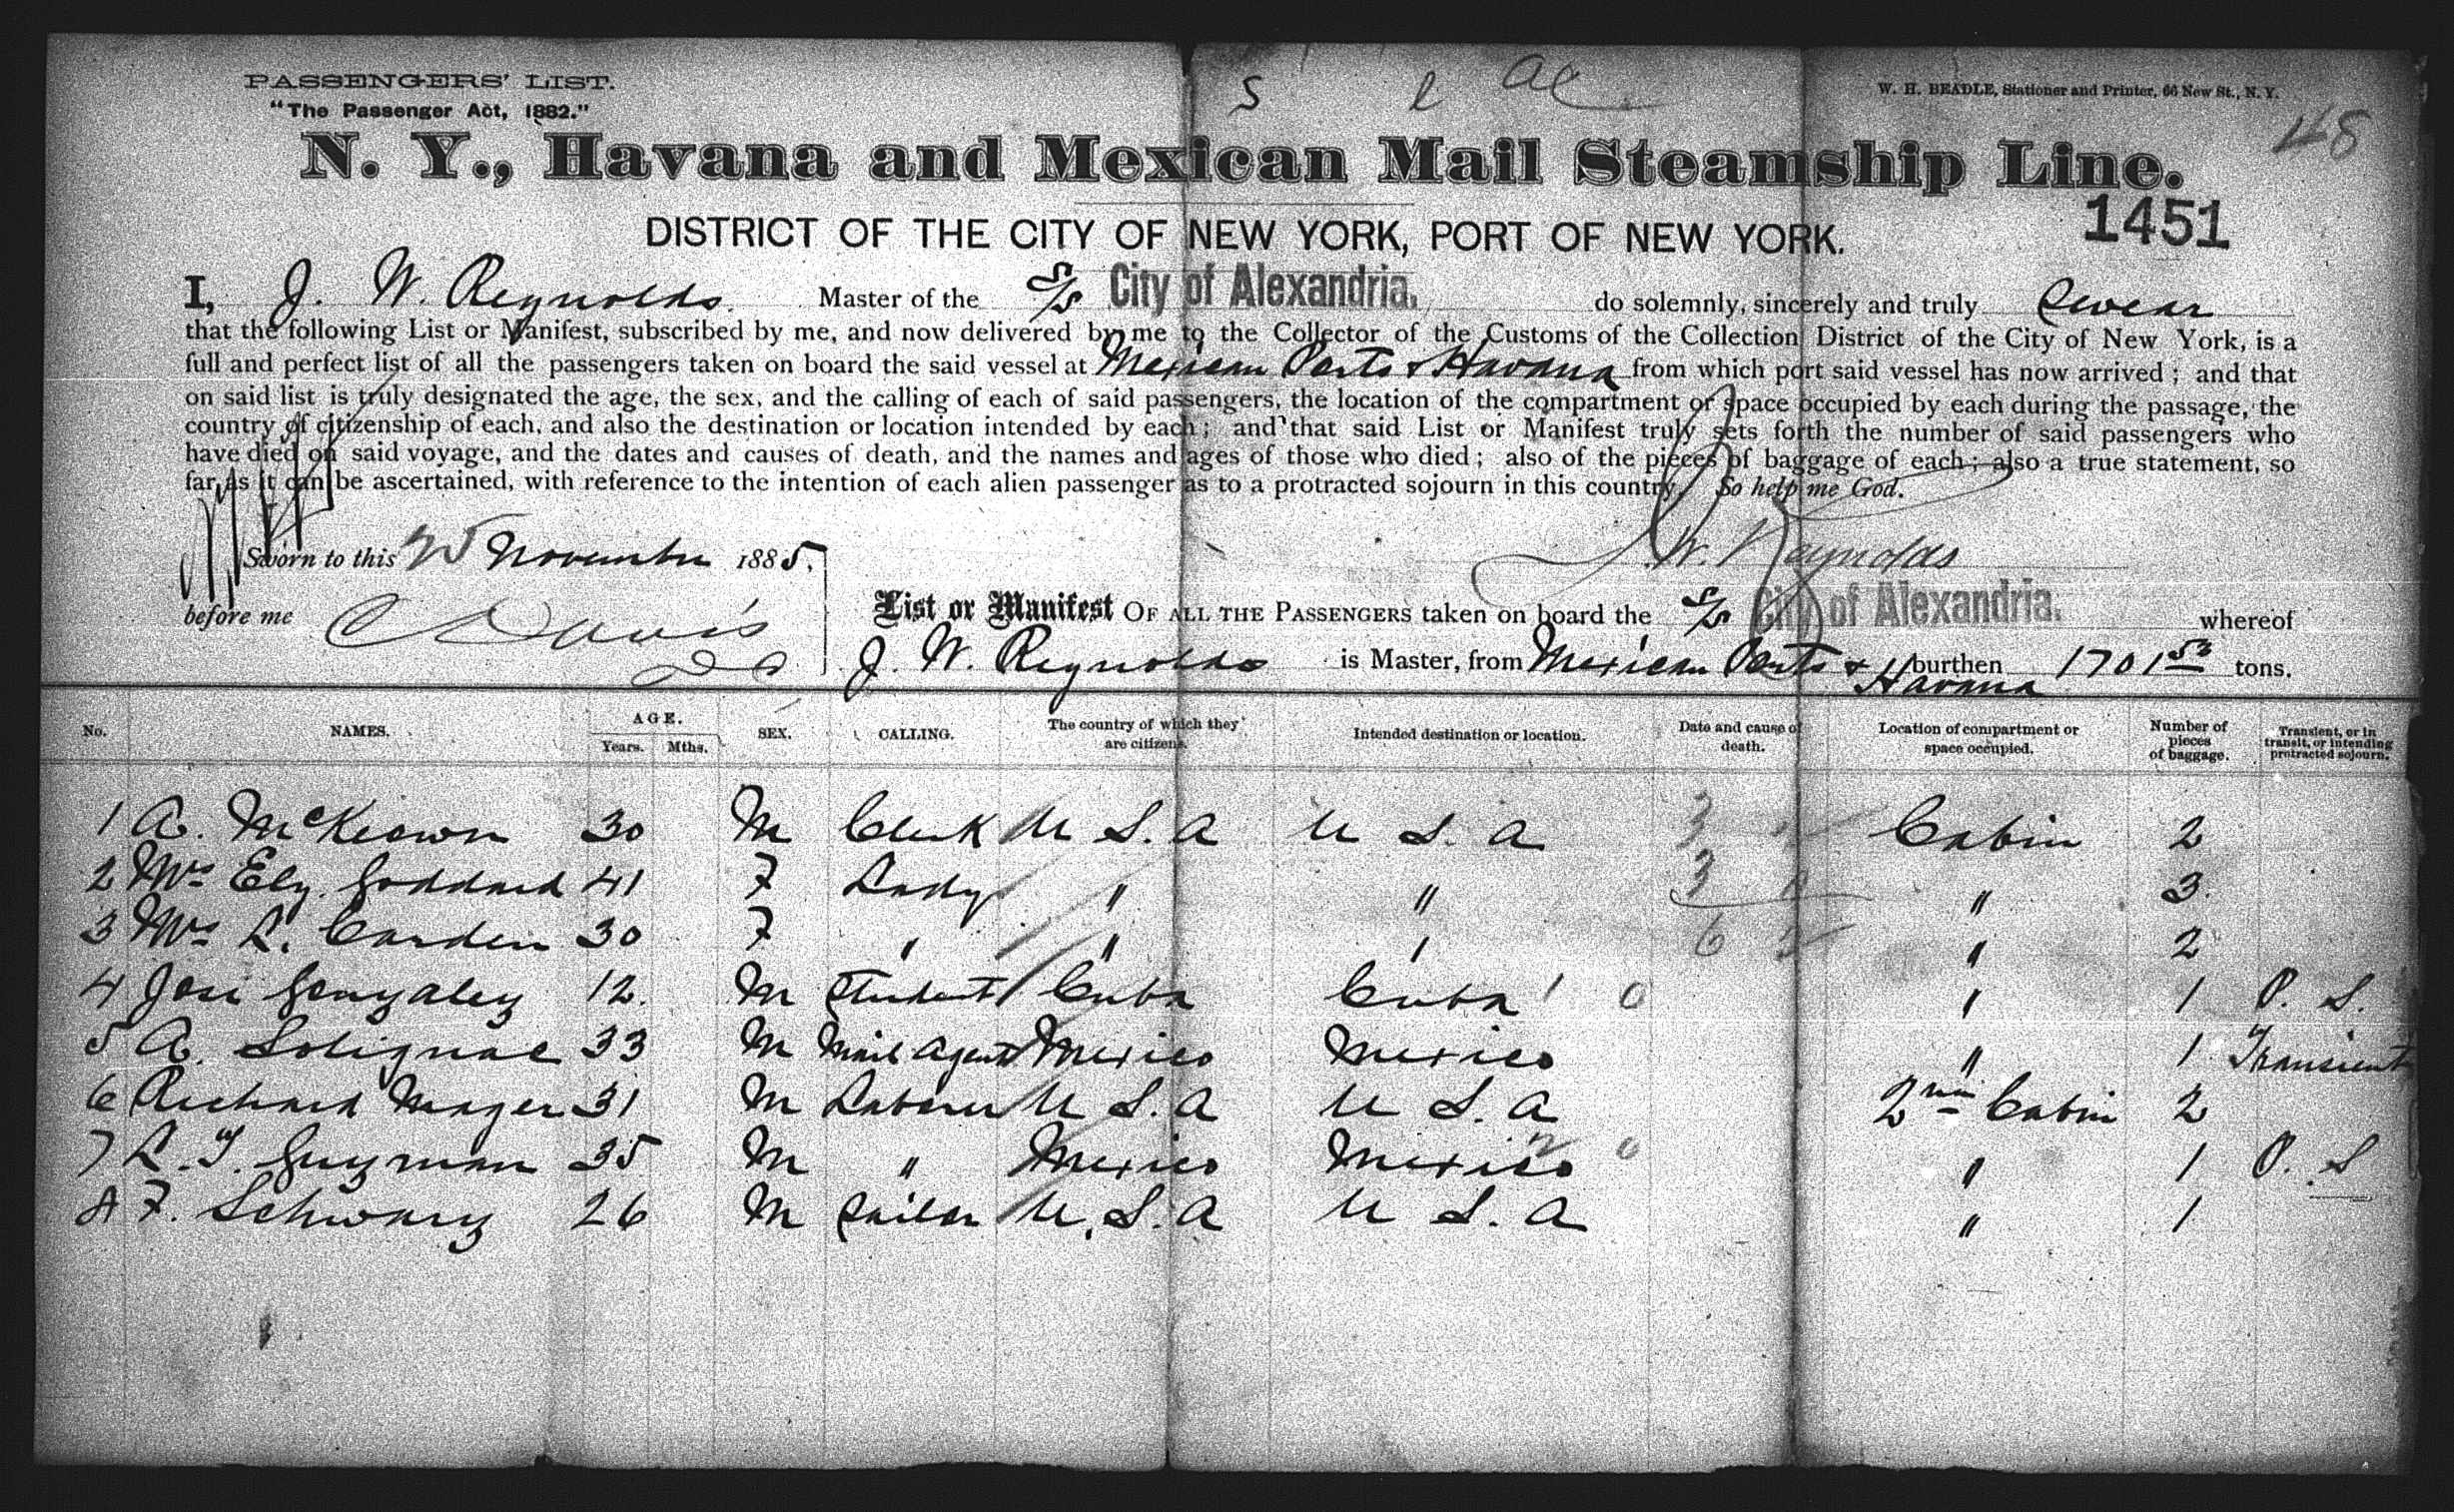 PASSENGERS' LIST.
"The Passenger Act, 1882."
W. H. BEADLE, Stationer and Printer, 66 New St., N. Y.
48
N. Y., Havana and Mexican Mail Steamship Line.
1451
DISTRICT OF THE CITY OF NEW YORK, PORT OF NEW YORK.
I, J. W. Reynolds Master of the S/S City of Alexandria, do solemnly, sincerely and truly Swear
that the following List or Manifest, subscribed by me, and now delivered by me to the Collector of the Customs of the Collection District of the City of New York, is a
full and perfect list of all the passengers taken on board the said vessel at Mexican Ports & Havana from which port said vessel has now arrived; and that
on said list is truly designated the age, the sex, and the calling of each of said passengers, the location of the compartment or space occupied by each during the passage, the
country of citizenship of each, and also the destination or location intended by each; and that said List or Manifest truly sets forth the number of said passengers who
have died on said voyage, and the dates and causes of death, and the names and ages of those who died; also of the pieces of baggage of each; also a true statement, so
far as it can be ascertained, with reference to the intention of each alien passenger as to a protracted sojourn in this country. So help me God.
Sworn to this 25 November 1885,
J. W. Reynolds
before me C Davis
List or Manifest OF ALL THE PASSENGERS taken on board the S/S City of Alexandria. whereof
J. W. Reynolds is Master, from Mexican Ports & Havana burthen 1701 53 tons.
No. NAMES. AGE. Years. Mths. SEX. CALLING. The country of which they are citizens. Intended destination or location. Date and cause of death. Location of compartment or space occupied. Number of pieces of baggage. Transient, or in transit, or intending protracted sojourn.
1 A. McKeown 30 M Clerk U S. A U S. A Cabin 2
2 Mrs Ely. Goddard 41 F Lady " " " 3.
3 Mrs L. Carden 30 F " " " " 2
4 Jose Gonzalez 12. M Student Cuba Cuba " 1 P. S.
5 A. Solignac 33 M Mail Agent Mexico Mexico " 1 Transient
6 Richard Mager 31 M Laborer U S. A U S. A 2nd Cabin 2
7 L. T. Guzman 35 M " Mexico Mexico " 1 P. S
8 F. Schwarz 26 M Sailor U. S. A U S. A " 1